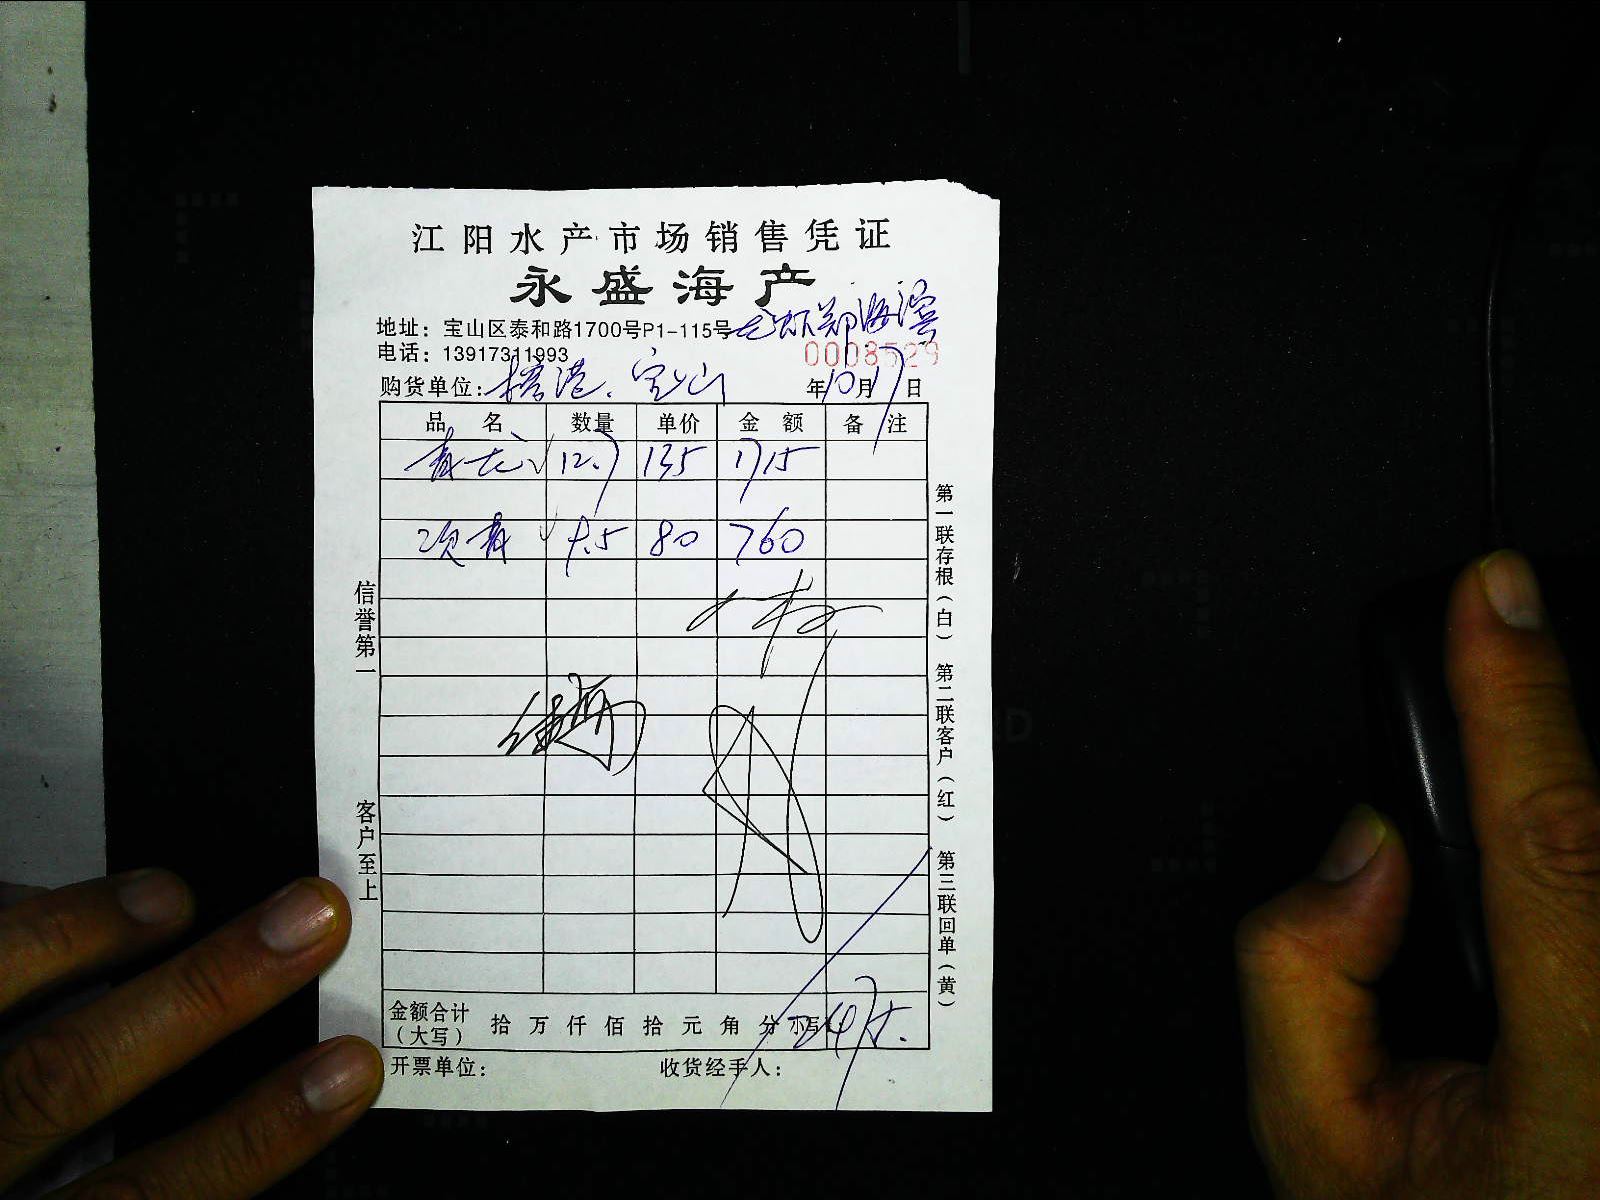 江阳水产市场销售凭证
永盛海产
地址：宝山区泰和路1700号P1-115号 龙虾郑海滨
电话：13917311993 0008529
购货单位： 宝山 年10月17日
品名 数量 单价 金额 备注
青龙 12.7 135 1715
青 9.5 80 760
信誉第一
客户至上
第一联存根（白） 第二联客户（红） 第三联回单（黄）
金额合计（大写） 拾万仟佰拾元角分 小写 2475.
开票单位： 收货经手人：